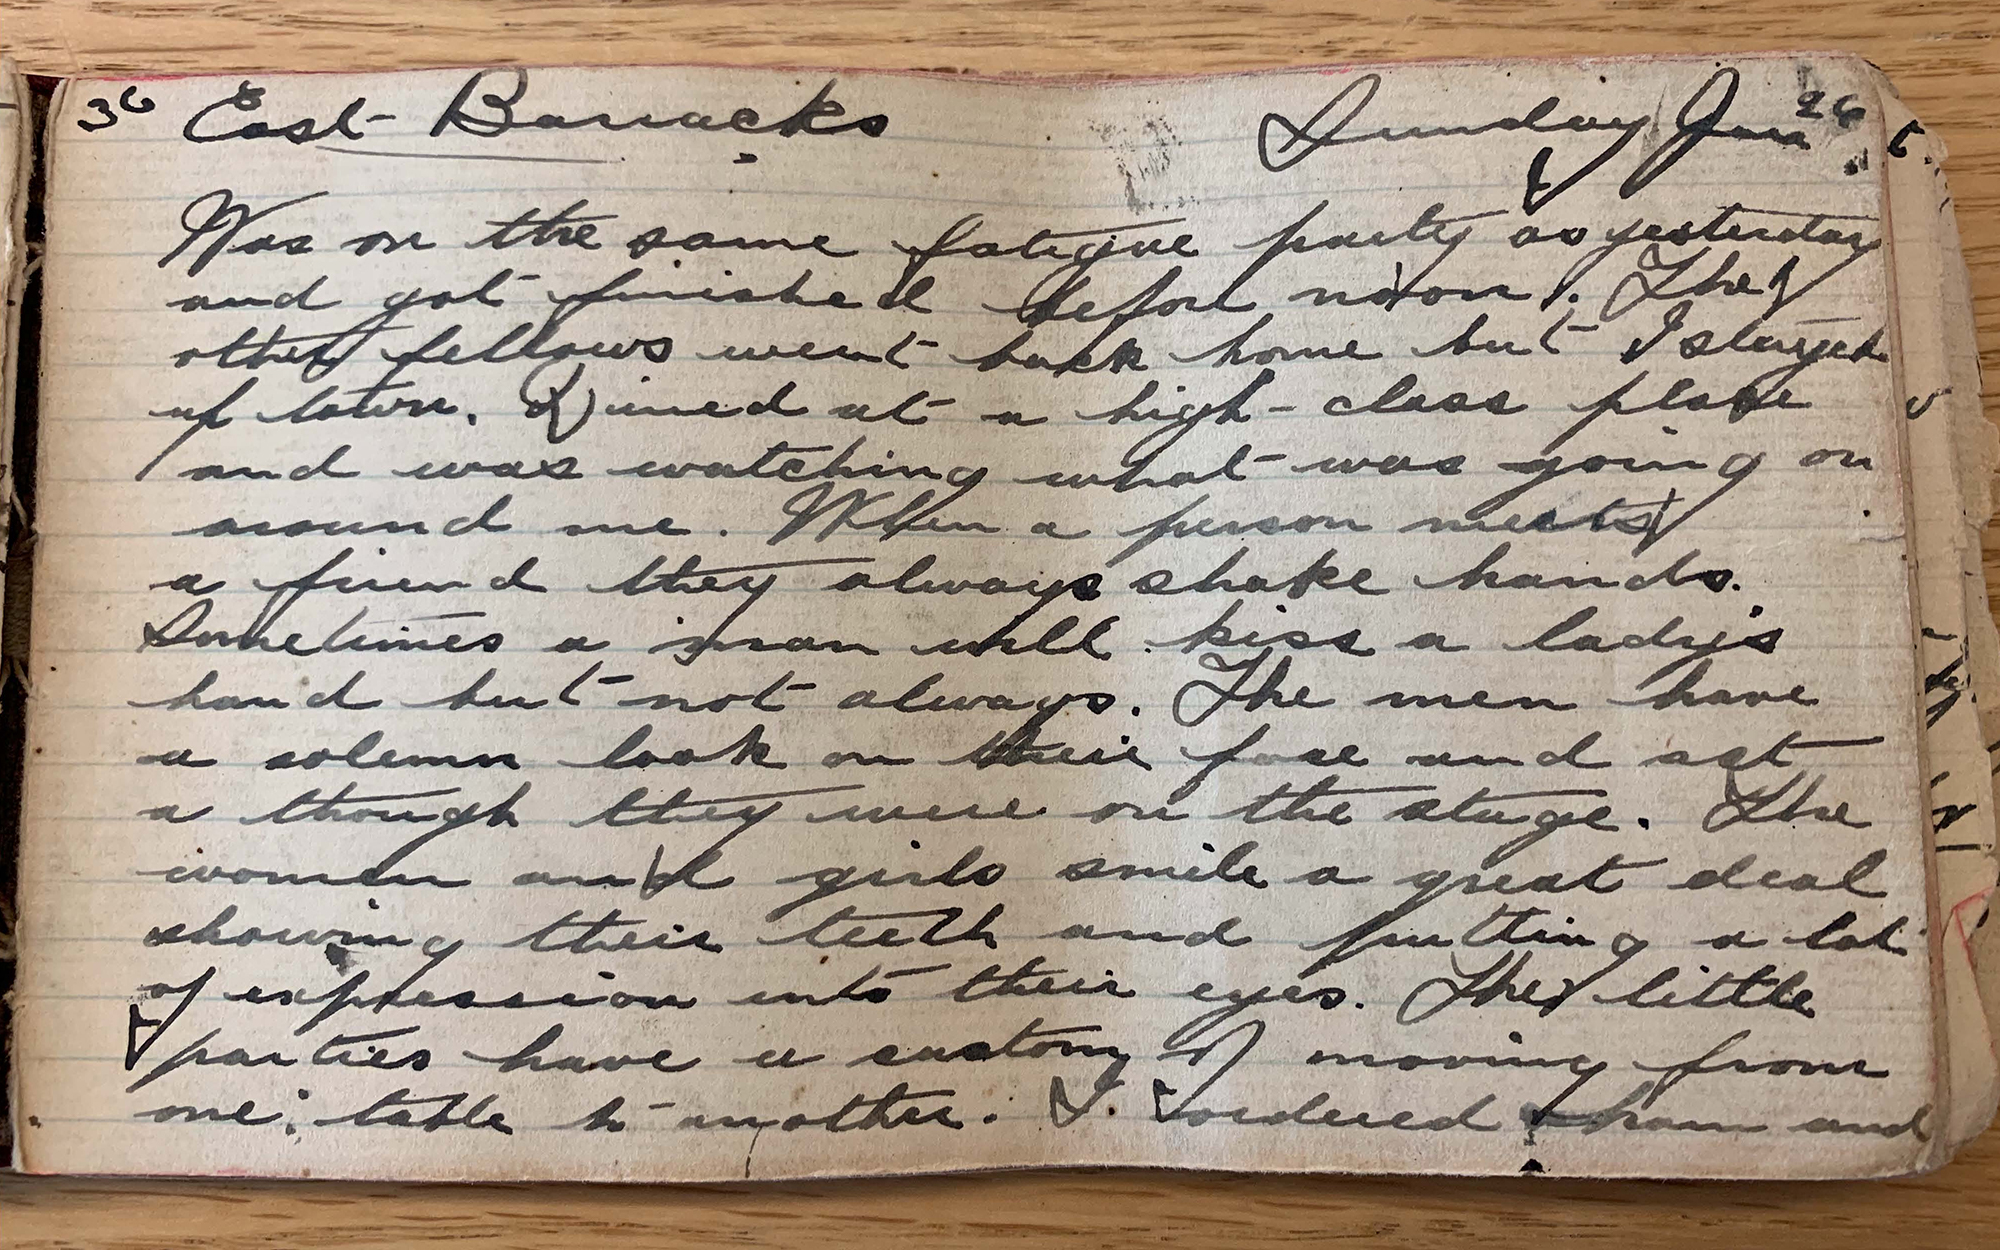 36 East Barracks Sunday Jan 26
Was on the same fatigue party as yesterday
and got finished before noon. The
other fellows went back home but I stayed
up town. Dined at a high-class place
and was watching what was going on
around me. When a person meets
a friend they always shake hands.
Sometimes a man will kiss a lady's
hand but not always. The men have
a solemn look on their face and act
a though they were on the stage. The
women and girls smile a great deal
showing their teeth and putting a lot
of expression into their eyes. The little
parties have a custom of moving from
one table to another. I ordered ham and